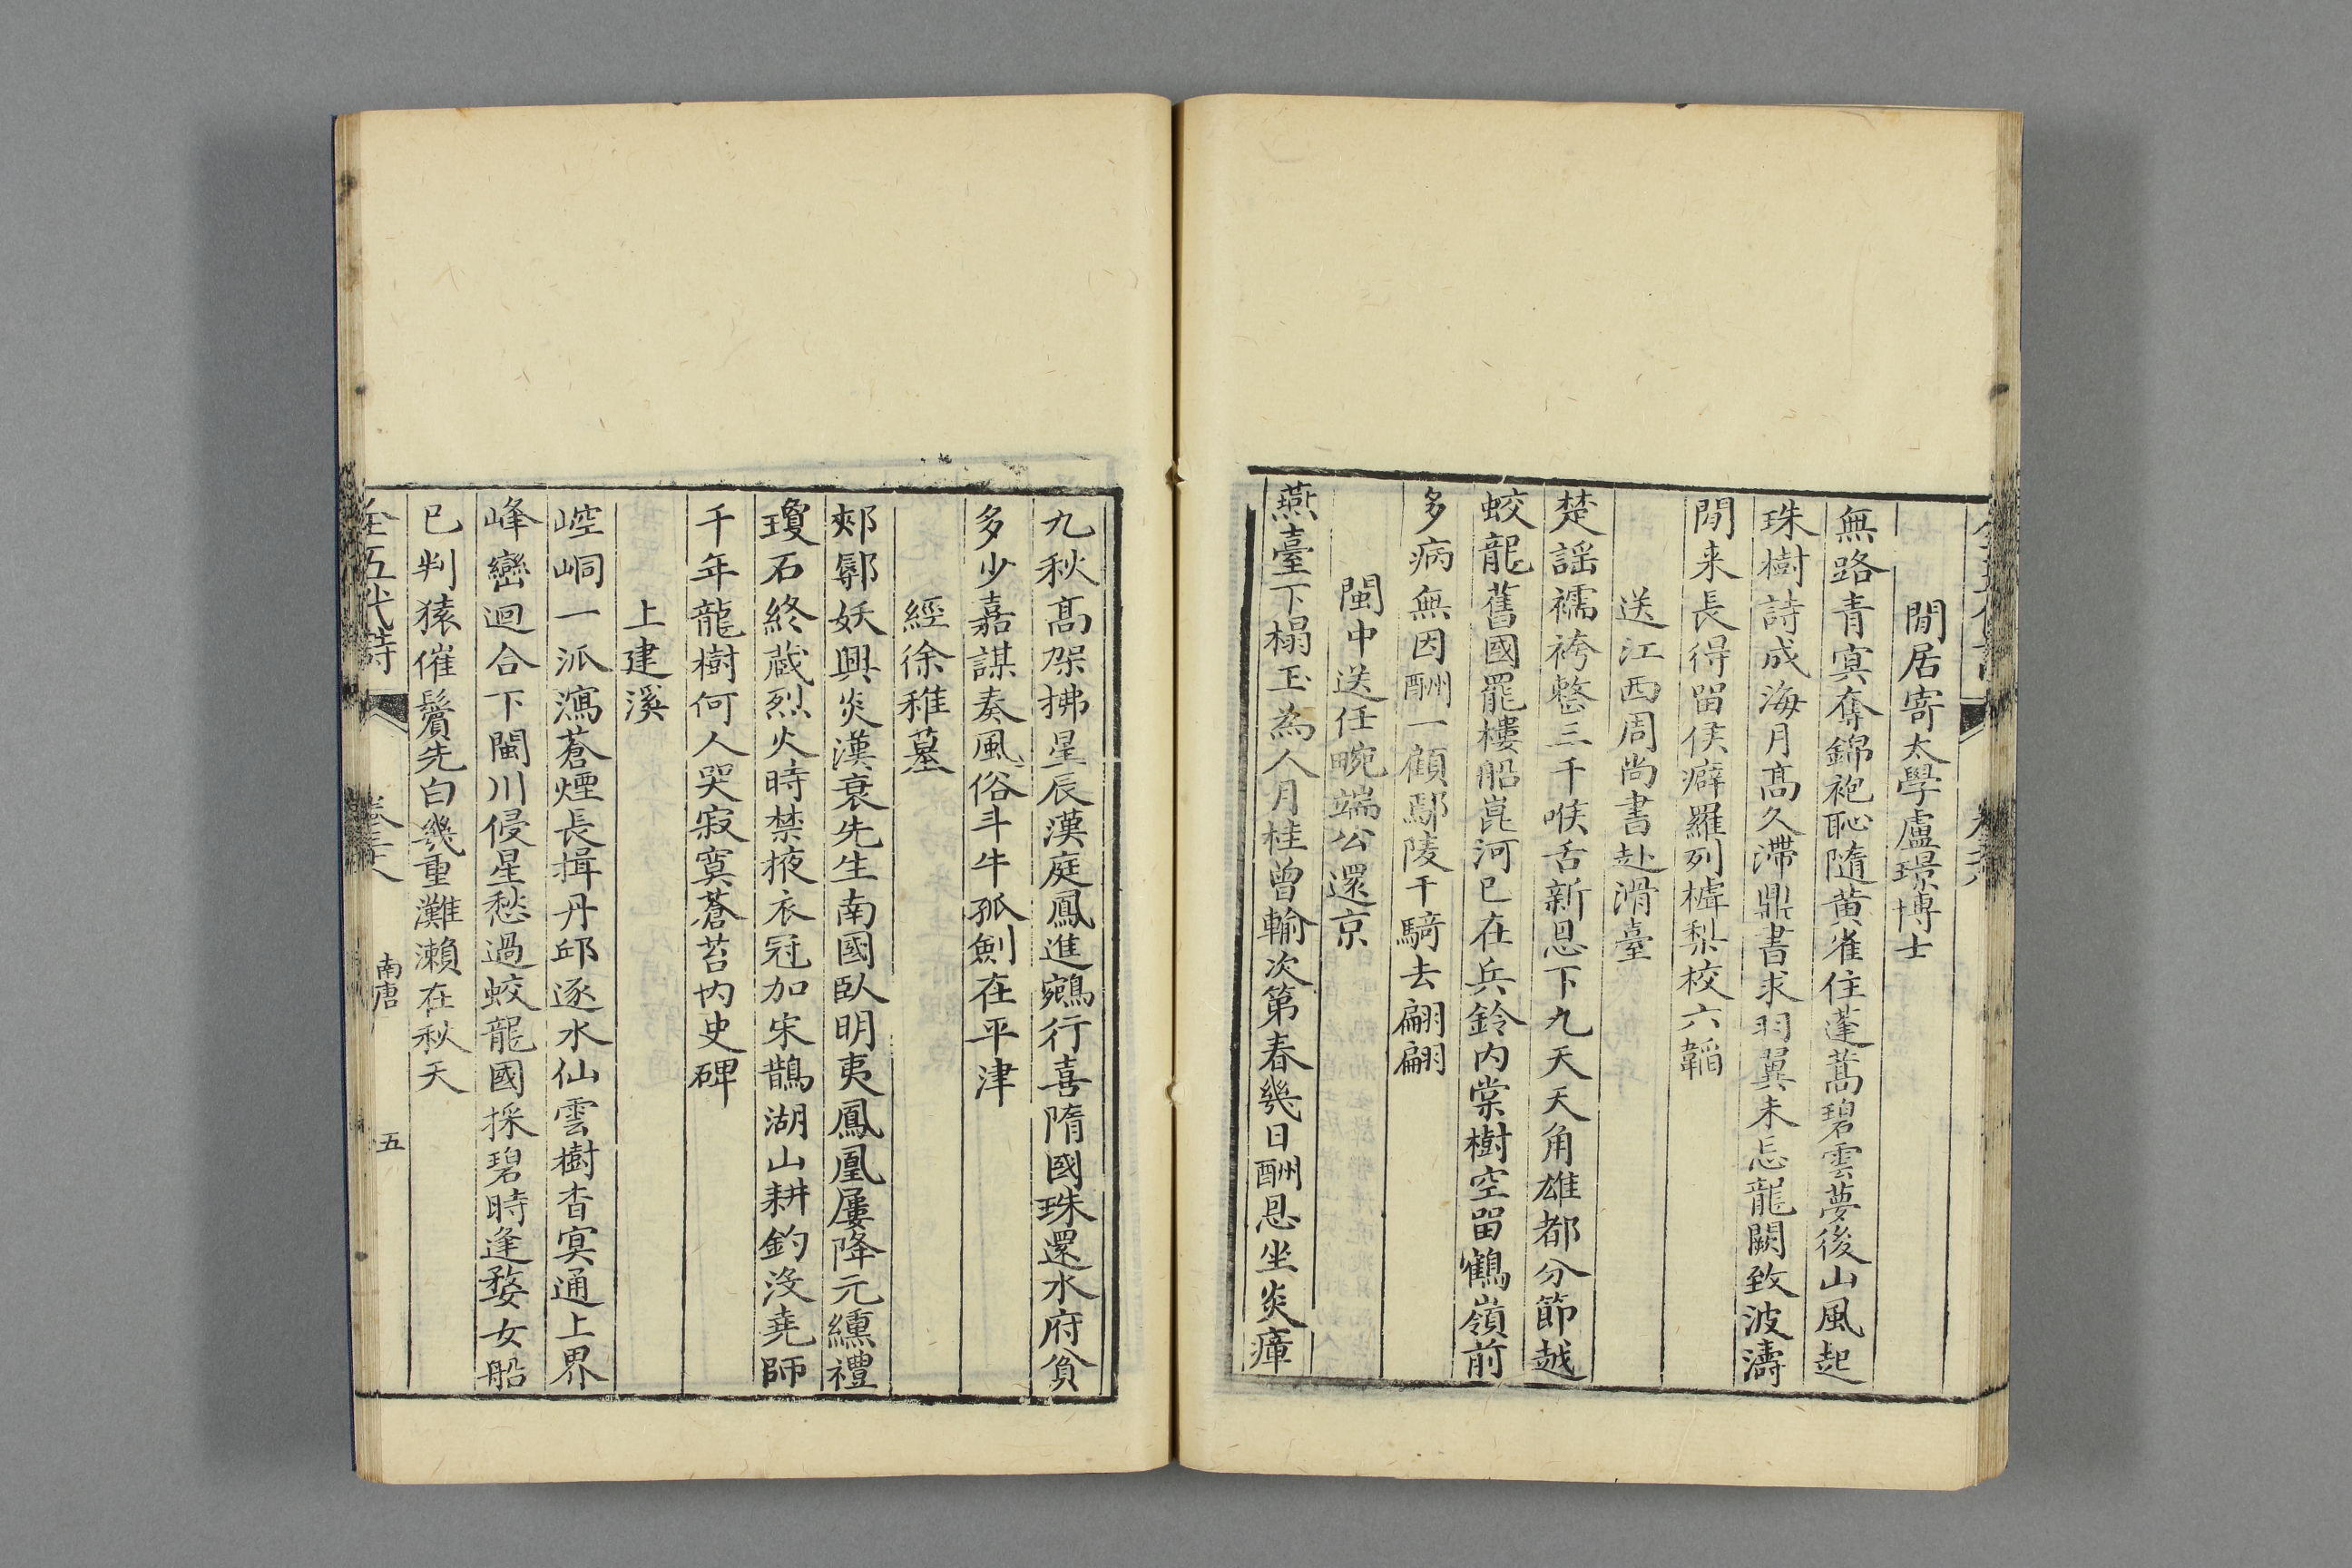 閒居寄太學盧璟博士
無路青冥奪錦袍恥隨黃雀住蓬蒿碧雲夢後山風起
珠樹詩成海月髙久滯鼎書求羽翼未忘龍闕致波濤
閒来長得留侯癖羅列樝梨校六韜
送江西周尚書赴滑臺
楚謡襦袴整三千喉舌新恩下九天天角雄都分節越
蛟龍舊國罷樓船崑河已在兵鈐内棠樹空留鶴嶺前
多病無因酬一顧鄢陵千騎去翩翩
閩中送任畹端公還京
燕臺下榻玉為人月桂曾輸次第春幾日酬恩坐炎瘴
九秋髙架拂星辰漢庭鳳進鵷行喜隋國珠還水府貧
多少嘉謀奏風俗斗牛孤劍在平津
經徐稚墓
郟鄏妖興炎漢衰先生南國臥明夷鳳凰屢降元纁禮
瓊石終蔵烈火時禁掖衣冠加宋鵲湖山耕釣没堯師
千年龍樹何人哭寂寞蒼苔内史碑
上建溪
崆峒一派瀉蒼煙長揖丹邱逐水仙雲樹杳冥通上界
峰巒迴合下閩川侵星愁過蛟龍國採碧時逢婺女船
已判猿催鬢先白幾重灘瀨在秋天
全五代詩
南唐
五